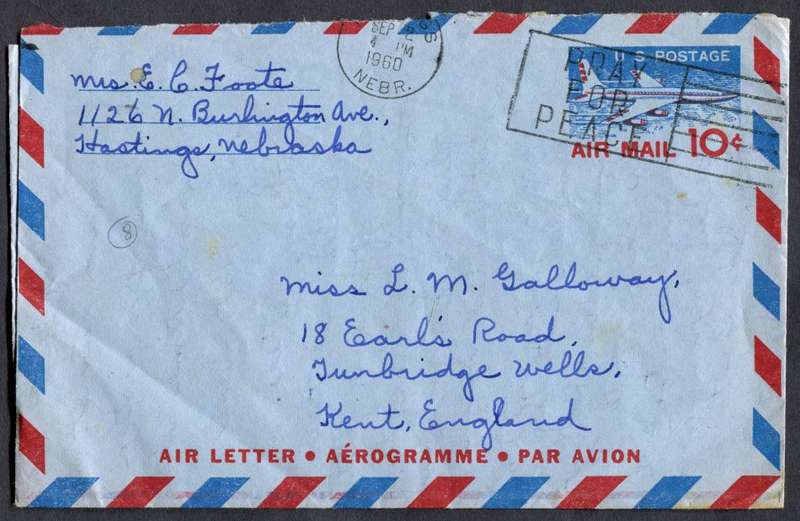 Mrs. E. C. Foote
1126 N. Burlington Ave.,
Hastings, Nebraska
GS
SEP 2
4 PM
1960
NEBR.
PRAY
FOR
PEACE
U S POSTAGE
AIR MAIL 10¢
8
Miss L. M. Galloway,
18 Earl's Road,
Tunbridge Wells,
Kent, England
AIR LETTER • AÉROGRAMME • PAR AVION